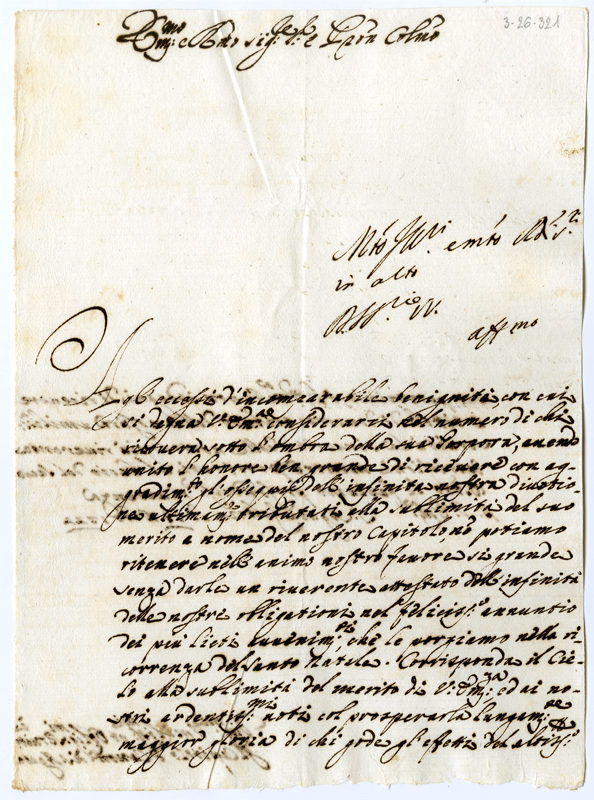 3-26-321
Em.mo e R.mo Sig.r Sig.r e Pron Colmo
in alto
aff.mo
eccessi d'incomparabile benignità, con cui
si degna V. Em.za considerarci nel numero di chi
ricovera sotto l'ombra della sua Porpora, avendo
unito l'honore ben grande di ricevere con ag-
gradim.to gl'ossequij dell'infinita nostra divotio-
ne ultimam.te tributati alla sublimità del suo
merito a nome del nostro Capitolo, nō potiamo
ritenere nell'animo nostro favore si grande
senza darle un riverente attestato dell'infinità
delle nostre obligationi nel feliciss.o annuntio
dei più lieti avvenim.ti, che le portiamo nella ri-
correnza del Santo Natale. Corrisponda il Cie-
lo alla sublimità del merito di V. Em.za, ed ai no-
stri ardentiss.mi voti col prosperarla lungam.te
maggior gloria di chi gode gl'effetti del